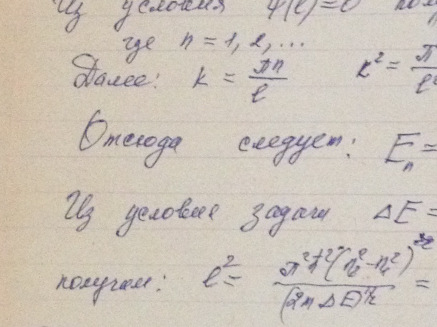 Из условия ψ(l)=0
где n = 1, 2, ...
Далее: k = πn/l k² = π
Отсюда следует: Eₙ =
Из условие задачи ΔE =
получаем: l² = π²ħ²(n₂²-n₁²) / (2m ΔE) =